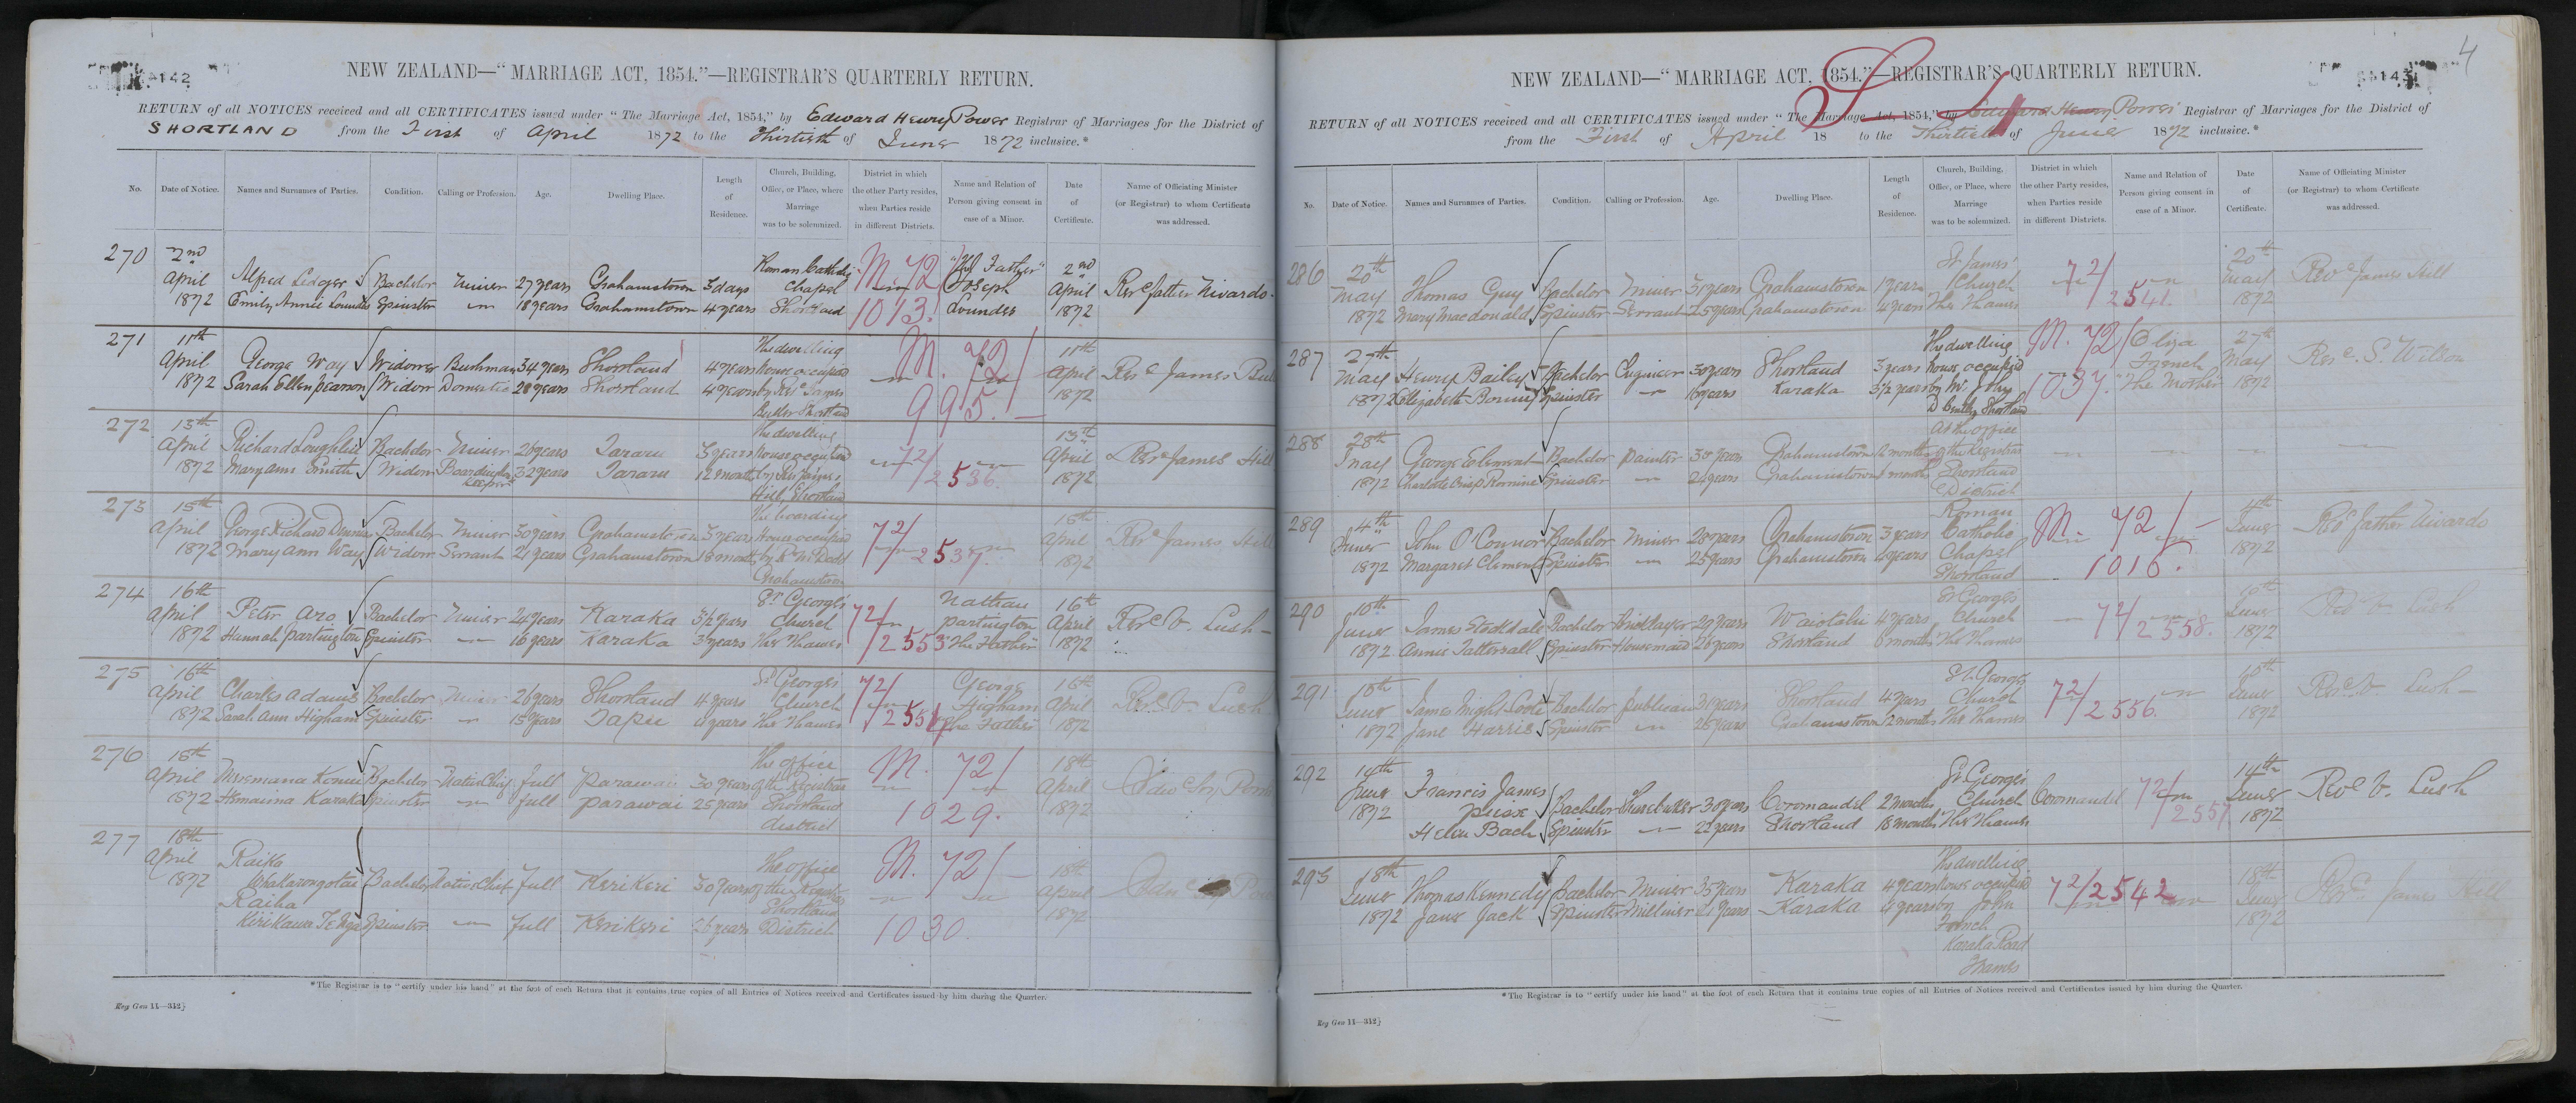 142
NEW ZEALAND—"MARRIAGE ACT, 1854."—REGISTRAR'S QUARTERLY RETURN.
RETURN of all NOTICES received and all CERTIFICATES issued under "The Marriage Act, 1854," by Edward Henry Power Registrar of Marriages for the District of
SHORTLAND from the First of April 1872 to the Thirtieth of June 1872 inclusive.*
No. Date of Notice. Names and Surnames of Parties. Condition. Calling or Profession. Age. Dwelling Place. Length of Residence. Church, Building, Office, or Place, where Marriage was to be solemnized. District in which the other Party resides, when Parties reside in different Districts. Name and Relation of Person giving consent in case of a Minor. Date of Certificate. Name of Officiating Minister (or Registrar) to whom Certificate was addressed.
270 2nd Roman Catholic M. 72/ "The Father" 2nd
April Alfred Ledger Bachelor Miner 27 years Grahamstown 3 days Chapel Joseph April Revd Father Nivardo
1872 Emily Annie Lounder Spinster 18 years Grahamstown 4 years Shortland 1013. Lounder 1872
271 11th The dwelling M. 72/ 11th
April George Way Widower Bushman 34 years Shortland 4 years house occupied April Revd James
1872 Sarah Ellen Pearson Widow Domestic 28 years Shortland 4 years by Revd James 995. 1872
Buller Shortland
272 13th The dwelling 13th
April Richard Loughlin Bachelor Miner 26 years Tararu 3 years house occupied 72/ April Revd James Hill
1872 Mary Ann Smith Widow Boardinghouse keeper 32 years Tararu 12 months by Rev James 2536. 1872
Hill, Shortland
273 15th The boarding 15th
April George Richard Bachelor Miner 30 years Grahamstown 3 years House occupied 72/ April Revd James Hill
1872 Mary Ann Way Widow Servant 21 years Grahamstown 18 months by 2537. 1872
Grahamstown
274 16th St George's Nathan 16th
April Peter Aro Bachelor Miner 24 years Karaka 3½ years Church 72/ Partington April Revd V. Lush
1872 Hannah Partington Spinster 16 years Karaka 3 years The Thames 2553 "The Father" 1872
275 16th St George's George 16th
April Charles Adams Bachelor Miner 26 years Shortland 4 years Church 72/ Higham April Revd V. Lush
1872 Sarah Ann Higham Spinster 15 years Tapu 4 years The Thames "The Father" 1872
276 18th The office M. 72/ 18th
April Bachelor Native Chief full Parawai 30 years of the Registrar April
1872 Karaka Spinster full Parawai 25 years Shortland 1029. 1872
district
277 18th
April Raika The office M. 72/ 18th
1872 Whakarongotai Bachelor Native Chief full Kerikeri 30 years of the Registrar April
Raiha Shortland 1872
Spinster full Kerikeri 26 years District 1030.
*The Registrar is to "certify under his hand" at the foot of each Return that it contains true copies of all Entries of Notices received and Certificates issued by him during the Quarter.
Reg Gen 11—312}
4
143
NEW ZEALAND—"MARRIAGE ACT, 1854."—REGISTRAR'S QUARTERLY RETURN.
RETURN of all NOTICES received and all CERTIFICATES issued under "The Marriage Act, 1854," by Edward Henry Power Registrar of Marriages for the District of
from the First of April 18 to the Thirtieth of June 1872 inclusive.*
No. Date of Notice. Names and Surnames of Parties. Condition. Calling or Profession. Age. Dwelling Place. Length of Residence. Church, Building, Office, or Place, where Marriage was to be solemnized. District in which the other Party resides, when Parties reside in different Districts. Name and Relation of Person giving consent in case of a Minor. Date of Certificate. Name of Officiating Minister (or Registrar) to whom Certificate was addressed.
286 20th St James' 20th
May Thomas Guy Bachelor Miner 31 years Grahamstown 1 year Church 72/ May Revd James Hill
1872 Mary Macdonald Spinster Servant 25 years Grahamstown 4 years The Thames 2541. 1872
287 27th The dwelling M. 72/ Eliza 27th
May Henry Bailey Bachelor Engineer 30 years Shortland 3 years house occupied French May Revd S. Wilson
1872 Elizabeth Spinster 16 years Karaka 3½ years by Mr. John 1037. "The Mother" 1872
D Shortland
288 28th At the office
May George Clement Bachelor Painter 30 years Grahamstown 12 months of the Registrar
1872 Charlotte Spinster 24 years Grahamstown months Shortland
District
289 4th Roman M. 72/ 4th
June John O'Connor Bachelor Miner 28 years Grahamstown 3 years Catholic June Revd Father Nivardo
1872 Margaret Clement Spinster 25 years Grahamstown years Chapel 1016. 1872
Shortland
290 10th St George's 10th
June James Stockdale Bachelor Bricklayer 29 years Waiotahi 4 years Church 72/ June Revd V. Lush
1872 Annie Tattersall Spinster Housemaid 26 years Shortland 6 months The Thames 2558. 1872
291 10th St. George's 10th
June James Bachelor Publican 31 years Shortland 4 years Church 72/ June Revd V. Lush
1872 Jane Harris Spinster 28 years Grahamstown 12 months The Thames 2556. 1872
292 14th St George's 14th
June Francis James Bachelor 30 years Coromandel 2 months Church Coromandel 72/ June Revd V. Lush
1872 Helen Bach Spinster 22 years Shortland 18 months The Thames 2557 1872
293 18th The dwelling 18th
June Thomas Kennedy Bachelor Miner 35 years Karaka 4 years house occupied 72/2542 June Revd James Hill
1872 Jane Jack Spinster Milliner 21 years Karaka 4 years by John 1872
French
Karaka Road
Thames
*The Registrar is to "certify under his hand" at the foot of each Return that it contains true copies of all Entries of Notices received and Certificates issued by him during the Quarter.
Reg Gen 11—312}